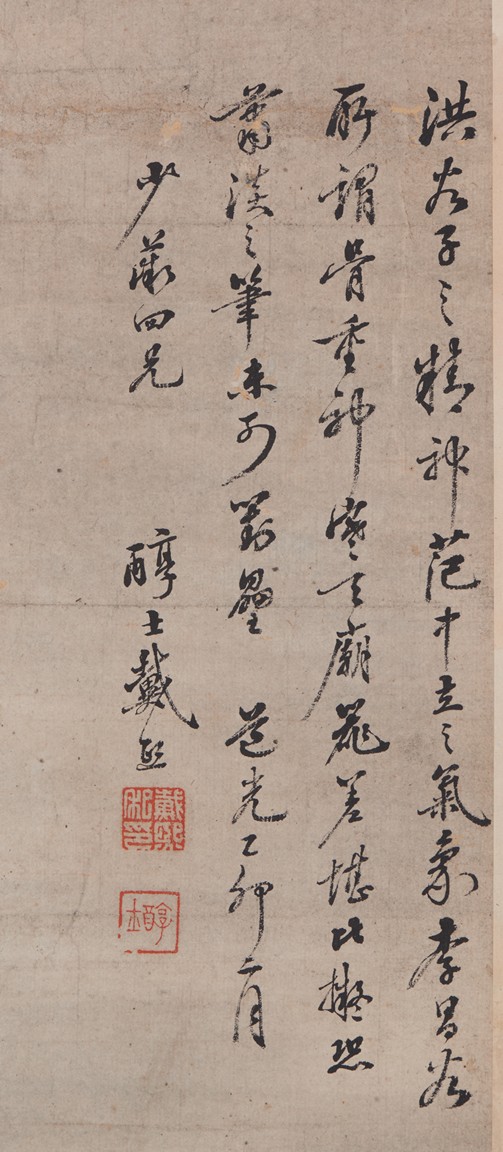 洪谷子之精神范中立之氣象李昌谷
所謂骨重神寒天廟器差堪比擬恐
蕭淡之筆未可對壘 道光乙卯二月
少薇四兄 醇士戴熙
戴熙私印
醇士